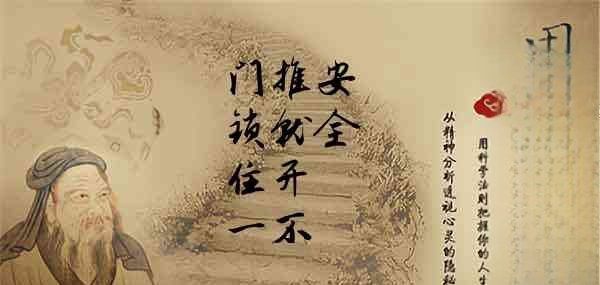 门锁住一
推就开不
安全
用科学法则把握你的人生
从精神分析透视心灵的隐秘